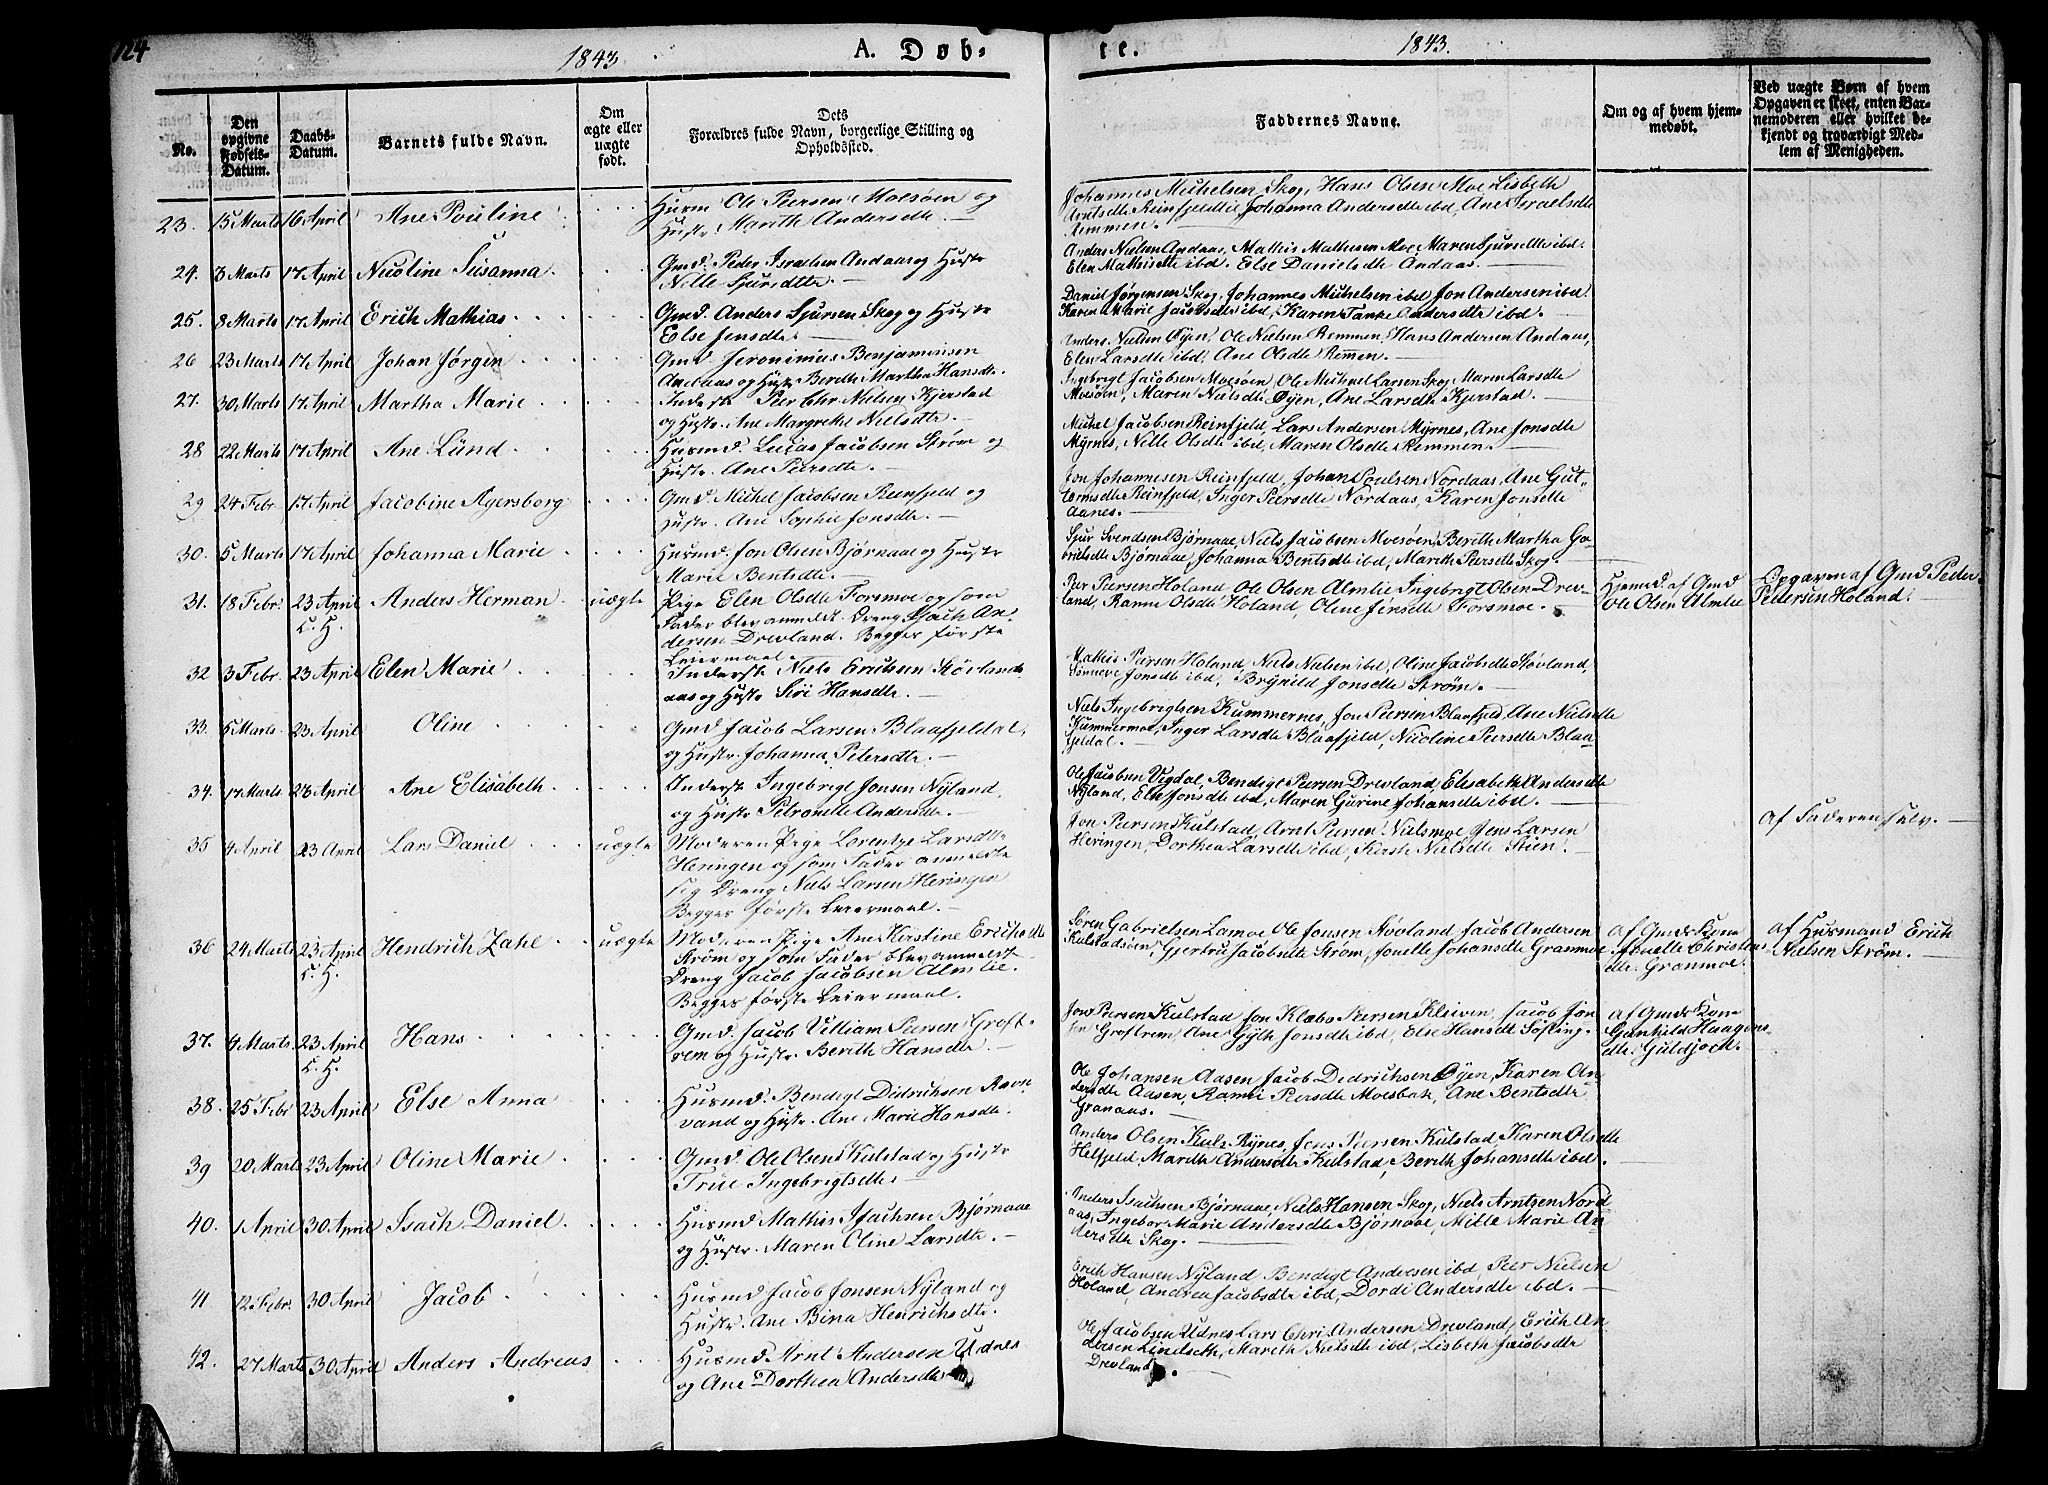 124
1843
A. Døb-
te.
1843.
No.
Den opgivne Fødsels-Datum.
Daabs-Datum.
Barnets fulde Navn.
Om ægte eller uægte født.
Dets Forældres fulde Navn, borgerlige Stilling og Opholdssted.
Faddernes Navne.
Om og af hvem hjemmedøbt.
Ved uægte Børn af hvem Opgaven er skeet, enten Barnemoderen eller hvilket bekjendt og troværdigt Medlem af Menigheden.
23. 15 Marts 16 April Ane Pouline
Husm Ole Peersen Moesøen og
Hustr. Marith Andersdtr.
Johannes Michelsen Skog, Hans Olsen Moe Lisbeth
Arntsdtr Reinfjeldlie, Johanna Andersdtr ibd, Ane Israelsdtr
Remmen.
24. 3 Marts 17 April Nicoline Susanna
Gmd. Peder Israelsen Andaas og Hustr
Nille Sjursdtr.
Anders Nielsen Andaas, Mathis Mathisen Moe, Maren Sjursdtr ibd.
Elen Mathisdtr ibd. Else Danielsdtr Andaas.
25. 8 Marts 17 April Erich Mathias
Gmd. Anders Sjursen Skog og Hustr
Else Jensdtr.
Daniel Jørgensen Skog, Johannes Michelsen ibd, Jon Andersen ibd.
Karen Marie Jacobsdtr ibd, Karen Tanke Andersdtr ibd.
26 23 Marts 17 April Johan Jørgen
Gmd. Jeronimus Benjaminsen
Andaas og Hustr Berith Martha Hansdtr.
Anders Nielsen Øyen, Ole Nielsen Remmen, Hans Andersen Andaas,
Elen Larsdtr ibd, Ane Olsdtr Remmen.
27. 30 Marts 17 April Martha Marie
Inderst Peer Chr Nielsen Kjerstad
og Hustr. Ane Margrethe Nielsdtr.
Ingebrigt Jacobsen Moesøen, Ole Michel Larsen Skog, Maren Larsdtr
Moesøen, Maren Nielsdtr Øyen, Ane Larsdtr Kjerstad.
28 22 Marts 17 April Ane Lünd
Husmd. Lucas Jacobsen Strøm og
Hustr. Ane Peersdtr.
Michel Jacobsen Reinfjeld, Lars Andersen Myrnes, Ane Jonsdtr
Myrnes, Nille Olsdtr ibd, Maren Olsdtr Remmen.
29 24 Febr. 17 April Jacobine Agersborg
Gmd. Michel Jacobsen Reinfjeld og
Hustr. Ane Sophie Jonsdtr.
Jon Johannesen Reinfjeld, Johan Poulsen Nordaas, Ane Gut-
tormsdtr Reinfjeld, Inger Peersdtr Nordaas, Karen Jonsdtr
Aanes.
30. 5 Marts 17 April Johanna Marie
Husmd. Jon Olsen Bjørnaae og Hustr
Marie Bentsdtr.
Sjur Svendsen Bjørnaae, Niels Jacobsen Moesøen, Berith Martha Ga-
brielsdtr Bjørnaae, Johanna Bentsdtr ibd, Marith Peersdtr Skog.
31. 18 Febr. 23 April Anders Herman uægte
C. H.
Pige Elen Olsdtr Forsmoe og som
Fader blev anmeldt Dreng Isach An-
dersen Drevland. Begges første
Leiermaal.
Peer Peersen Holand Ole Olsen Almlie Ingebrigt Olsen Drev-
land, Ranne Olsdtr Holand, Oline Jensdtr Forsmoe.
Hjemd. af Gmd
Ole Olsen Almlie
Opgaven af Gmd Peder
Pedersen Holand.
32 3 Febr. 23 April Elen Marie
Inderst Niels Erichsen Støvland-
aas og Hustr Siri Hansdtr.
Mathis Peersen Holand, Niels Nielsen ibd, Oline Jacobsdtr Støvland,
Sinneve Jonsdtr ibd, Brynild Jonsdtr Strøm.
33. 5 Marts 23 April Oline
Gmd Jacob Larsen Blaafjeldal,
og Hustr. Johanna Petersdtr.
Niels Ingebrigtsen Kummernes, Jon Peersen Blaafjeld, Ane Nielsdtr
Kummermoe, Inger Larsdtr Blaafjeld, Nicoline Peersdtr Blaa-
fjeldal.
34. 17 Marts 23 April Ane Elisabeth
Inderst Ingebrigt Jonsen Nyland,
og Hustr Petronelle Andersdtr.
Ole Jacobsen Vigdal, Bendigt Peersen Drevland, Elisabeth Andersdtr
Nyland, Else Jonsdtr ibd, Maren Gurine Johansdtr ibd.
35 4 April 23 April Lars Daniel uægte
Moderen Pige Lorentze Larsdtr
Heringen og som Fader anmeldte
sig Dreng Niels Larsen Heringen
Begges første Leiermaal.
Jon Peersen Kulstad, Arnt Peersen Nielsmoe Jens Larsen
Heringen, Dorthea Larsdtr ibd, Kirsti Nielsdtr Stien.
af Faderen selv.
36 24 Marts 23 April Hendrich Zahl uægte
C. H.
Moderen Pige Ane Kirstine Erichsdtr
Strøm og som Fader blev anmeldt
Dreng Jacob Jacobsen Almlie.
Begges første Leiermaal.
Søren Gabrielsen Lamoe Ole Jonsen Støvland, Jacob Andersen
Kulstadsøen, Gjertru Jacobsdtr Strøm, Jonelle Johansdtr Granmoe
af Gmds Kone
Jonelle Christens-
dtr Granmoe.
af Husmand Erich
Nielsen Strøm.
37. 4 Marts 23 April Hans
C. H.
Gmd. Jacob Villiam Peersen Groft-
rem og Hustr. Berith Hansdtr.
Jon Peersen Kulstad Jon Klæbo Peersen Kleiven, Jacob Jon-
sen Groftrem, Ane Gyth Jonsdtr ibd, Else Hansdt Søfting.
af Gmds Kone
Gunhild Haagens-
dtr Guldjock.
38. 25 Febr 23 April Else Anna
Husmd. Bendigt Didrichsen Ravn-
vand og Hustr. Ane Marie Hansdtr.
Ole Johansen Aasen, Jacob Dedrichsen Øyen, Karen An-
dersdtr Aasen, Rannei Peersdtr Moesbak, Ane Bentsdtr
Granaas.
39 20 Marts 23 April Oline Marie
Gmd. Ole Olsen Kulstad og Hustr
Trine Ingebrigtsdtr
Anders Olsen Kuls Rynes, Jens Peersen Kulstad, Karen Olsdtr
Helfjeld, Marith Andersdtr Kulstad, Berith Johansdtr ibd.
40. 1 April 30 April Isach Daniel
Husmd Mathis Isachsen Bjørnaae
og Hustr. Maren Oline Larsdtr.
Anders Isachsen Bjørnaae, Niels Hansen Skog, Niels Arntsen Nord-
aas, Ingebor Marie Andersdtr Bjørnaae, Mille Marie An-
dersdtr Skog.
41 12 Febr. 30 April Jacob
Husmd Jacob Jonsen Nyland og
Hustr. Ane Bina Henrichsdtr.
Erich Hansen Nyland Bendigt Andersen ibd, Peer Nielsen
Holand, Andrea Jacobsdtr ibd, Dordi Andersdtr ibd.
42. 27 Marts 30 April Anders Andreas
Husmd Arnt Andersen Udnes
og Ane Dorthea Andersdtr
Ole Jacobsen Udnes Lars Chri. Andersen Drevland, Erich An-
dersen Lindseth, Mareth Nielsdtr ibd, Lisbeth Jacobsdtr
Drevland.